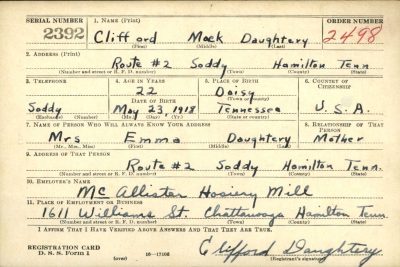 SERIAL NUMBER 1. NAME (Print) ORDER NUMBER
2392 Clifford Mack Daughtery 2498
(First) (Middle) (Last)
2. ADDRESS (Print)
Route #2 Soddy Hamilton Tenn
(Number and street or R. F. D. number) (Town) (County) (State)
3. TELEPHONE 4. AGE IN YEARS 5. PLACE OF BIRTH 6. COUNTRY OF CITIZENSHIP
22 Daisy
DATE OF BIRTH (Town or county)
Soddy May 23, 1918 Tennessee U.S.A.
(Exchange) (Number) (Mo.) (Day) (Yr.) (State or country)
7. NAME OF PERSON WHO WILL ALWAYS KNOW YOUR ADDRESS 8. RELATIONSHIP OF THAT PERSON
Mrs Emma Daughtery Mother
(Mr., Mrs., Miss) (First) (Middle) (Last)
9. ADDRESS OF THAT PERSON
Route #2 Soddy Hamilton Tenn.
(Number and street or R. F. D. number) (Town) (County) (State)
10. EMPLOYER'S NAME
McAllistar Hosiery Mill
11. PLACE OF EMPLOYMENT OR BUSINESS
1611 Williams St. Chattanooga Hamilton Tenn
(Number and street or R. F. D. number) (Town) (County) (State)
I AFFIRM THAT I HAVE VERIFIED ABOVE ANSWERS AND THAT THEY ARE TRUE.
REGISTRATION CARD
D. S. S. Form 1 16—17105 Clifford Daughtery
(over) (Registrant's signature)